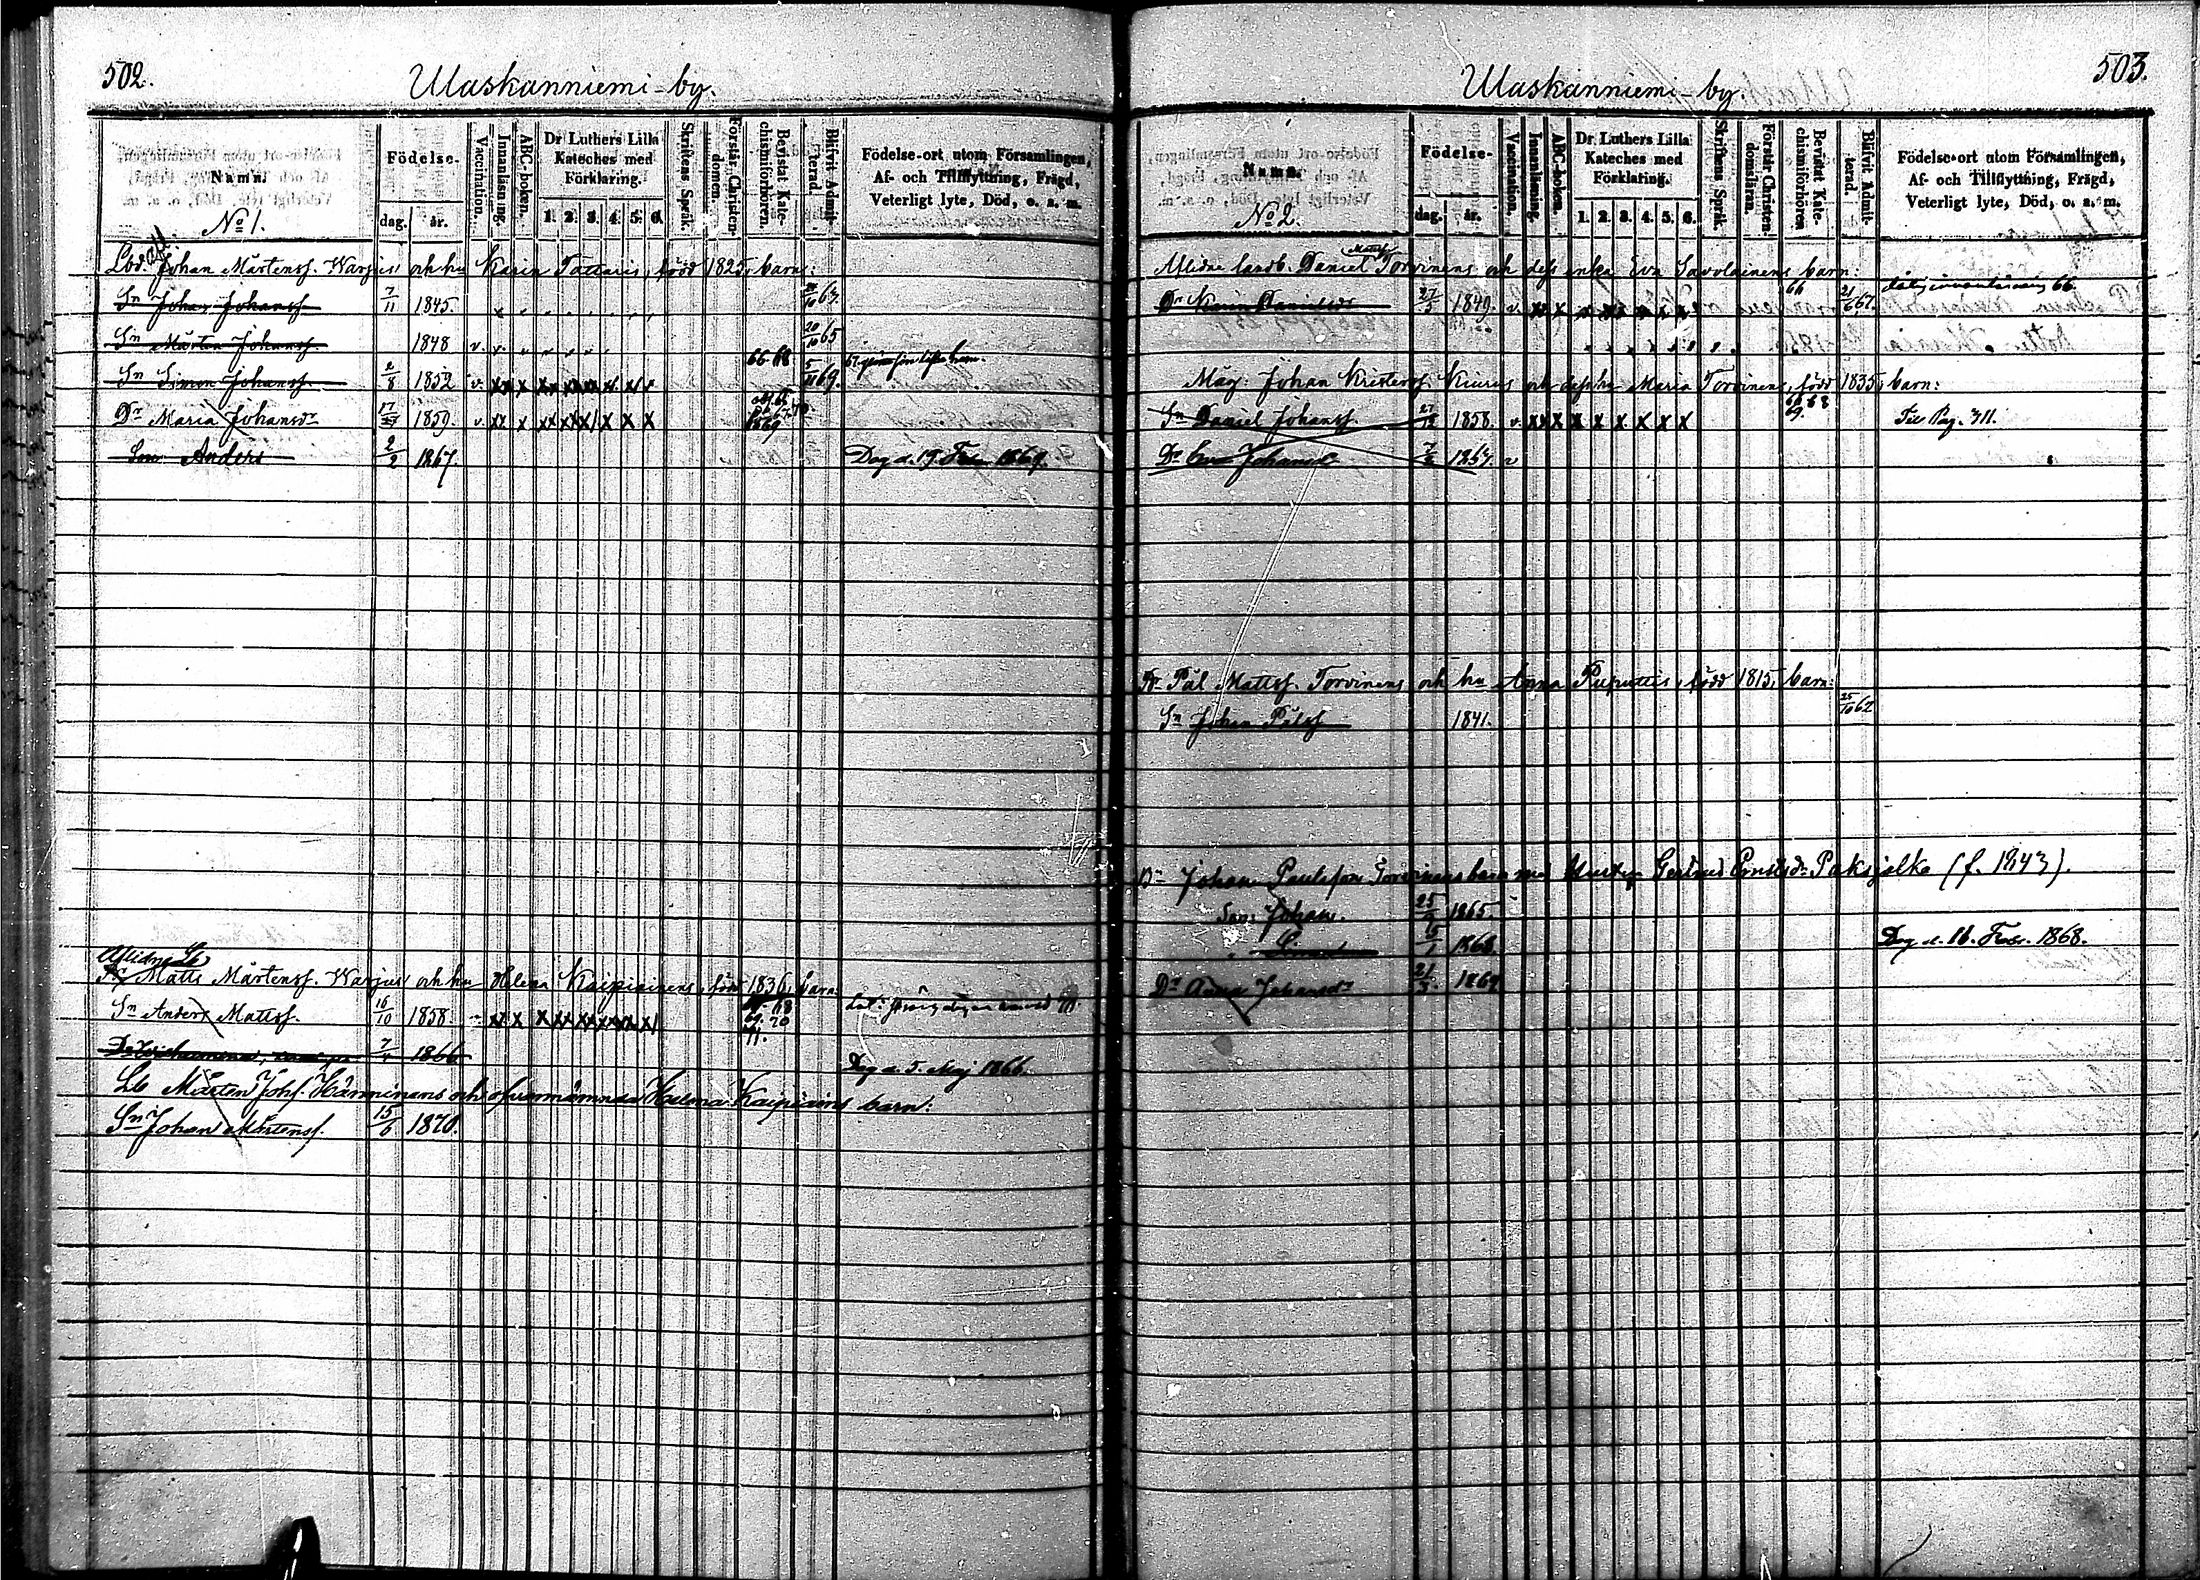 502.
Ulaskanniemi-by.
Namn.
Födelse-
dag. år.
Vaccination.
Innanläsning.
ABC-boken.
Dr Luthers Lilla
Kateches med
Förklaring.
1. 2. 3. 4. 5. 6.
Skriftens Språk.
Förstår Christen-
domen.
Bevistat Kate-
chismiförhören.
Blifvit Admit-
terad.
Födelse-ort utom Församlingen,
Af- och Tillflyttning, Frägd,
Veterligt lyte, Död, o. a. m.
No 1.
Johan Mårtenss. Warjus och hu Karin Tattaris, född 1825, barn:
Sn Johan Johanss. 7/11 1845.
Sn Mårten Johanss. 1848 v. 20/10 65
Sn Simon Johanss. 2/8 1852 v. x x x x 66 68 5/11 69.
Dr Maria Johansdr 1859. v. xx x xx x x x x
Son Anders 2/2 1867. Dog d. 19 Febr. 1869.
Aflidne
Matts Mårtenss. Warjus och hu Helena född 1836, barn:
Sn Anders Mattss. 16/10 1858. 69. 70
1866 Dog d. 5. Maj 1866.
Mårten Johs. Hänninens och ofvannämnda barn:
Sn Johan Mårtenss. 15/6 1870.
503.
Ulaskanniemi-by.
Namn.
Födelse-
dag. år.
Vaccination.
Innanläsning.
ABC-boken.
Dr Luthers Lilla
Kateches med
Förklaring.
1. 2. 3. 4. 5. 6.
Skriftens Språk.
Förstår Christen-
domsläran.
Bevistat Kate-
chismiförhören
Blifvit Admit-
terad.
Födelse-ort utom Församlingen,
Af- och Tillflyttning, Frägd,
Veterligt lyte, Död, o. a. m.
No 2.
Aflidne landb. Daniel Mattss. Torvinens och dess enka Eva Savolainens barn:
Dr Karin Danielsdr 27/3 1849. v. xx x x x x x x x 66 21/6 67.
Måg. Johan Kristerss. Kiurus och dess hu Maria Torvinens, född 1835, barn:
Sn Daniel Johanss. 1858. v. xx x x x x x x x 68 69. Till Pag. 311.
Dr Eva Johansdr 1867. v
Br Pål Mattss. Torvinens och hu Anna född 1815, barn:
Sn Johan Pålss 1841. 25/10 62
Br Johan Paulsson Torvinens barn med Hustru Gertrud Paksjalka (f. 1843).
Son: Johan. 1865.
1868. Dog d. 16. Febr. 1868.
Dr Anna Johansdr 21/3. 1869